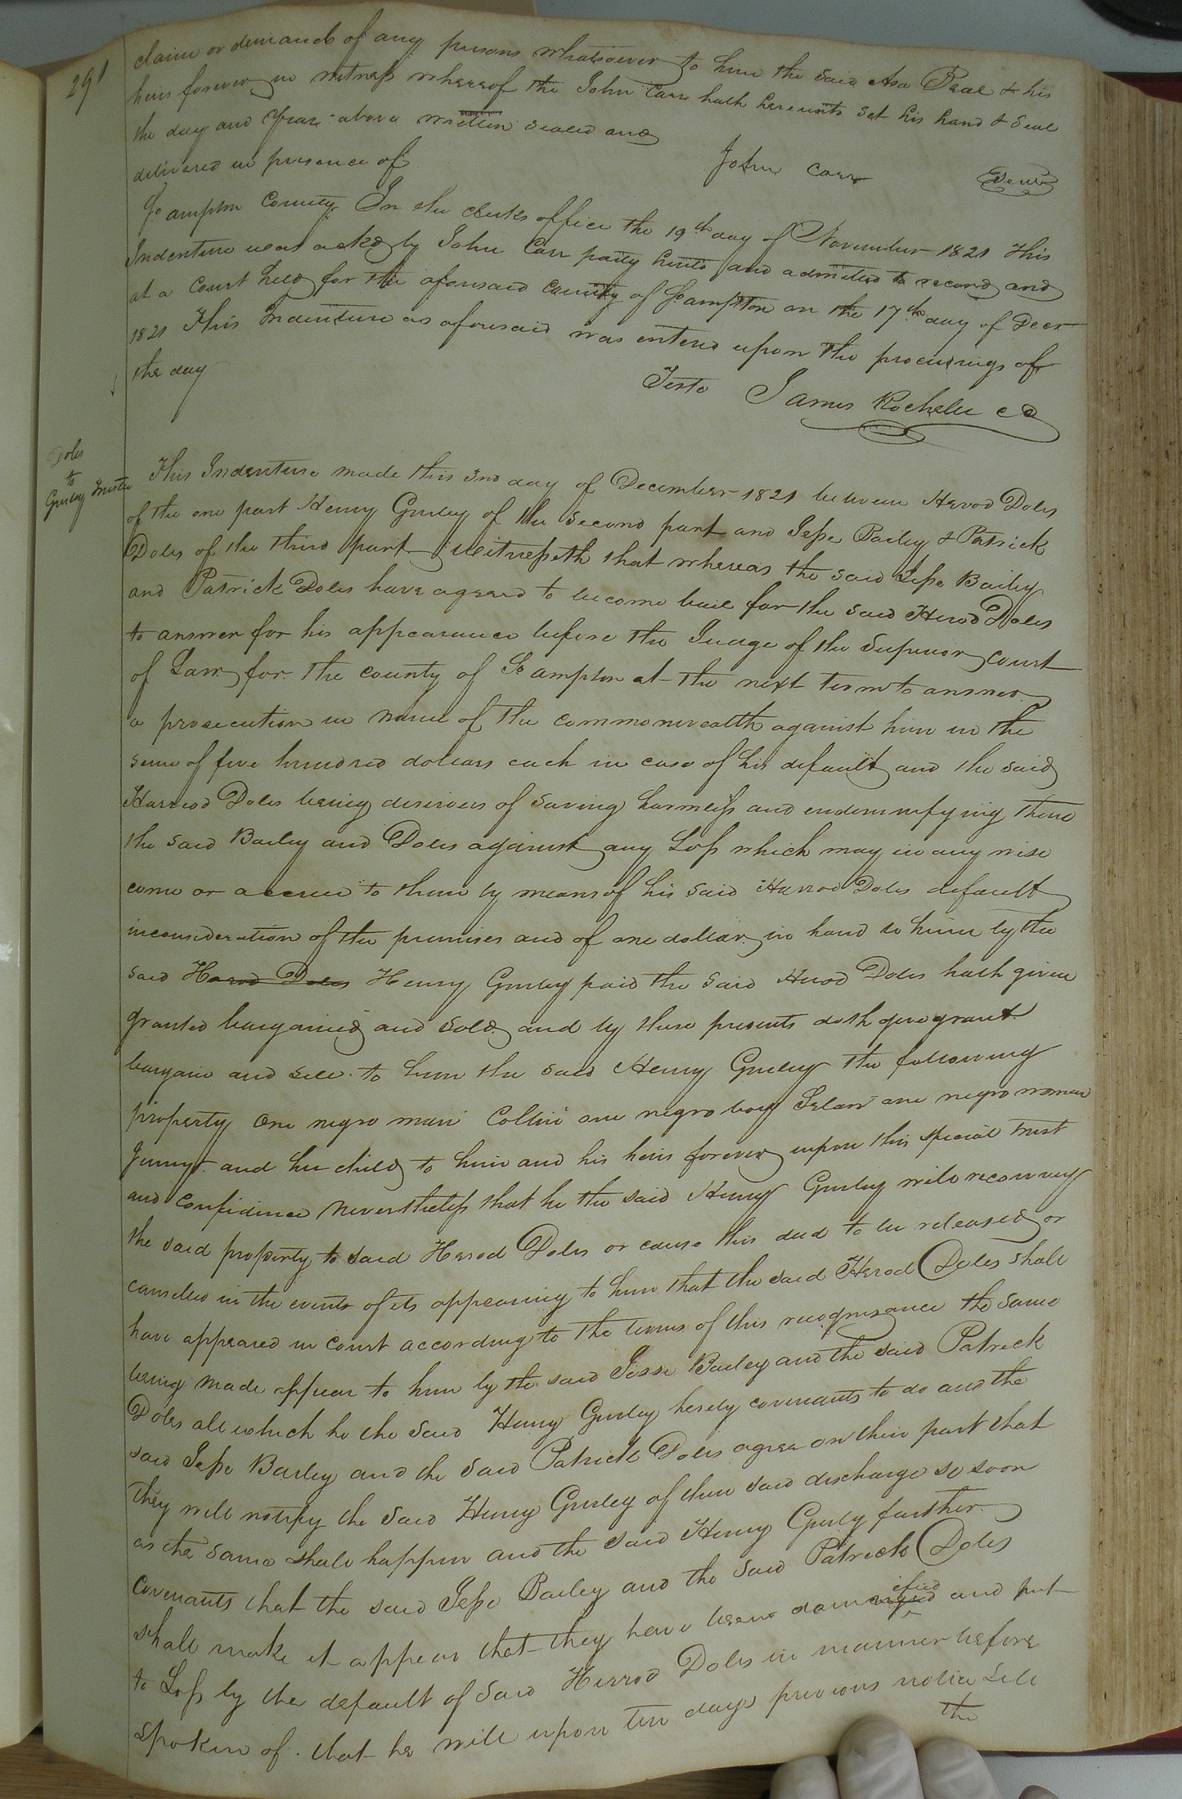 291
claim or demands of any persons whatsoever to him the said Asa Beal & his
heirs forever in witness whereof the John Carr hath hereunto set his hand & seal
the day and Year above written sealed and
delivered in presence of John Carr Seal
So ampton County In the clerks office the 19th day of November 1821 This
Indenture was acked by John Carr party hereto and admitted to record and
at a Court held for the aforesaid County of So ampton on the 17th day of Decr
1821 This Indenture as aforesaid was entered upon the proceedings of
the day
Teste James Rochelle CC
Doles
to
Gurley Trustee
This Indenture made this 3rd day of December 1821 between Herod Doles
of the one part Henry Gurley of the second part and Jesse Bailey & Patrick
Doles of the third part witnesseth that whereas the said Jesse Bailey
and Patrick Doles have agreed to become bail for the said Herod Doles
to answer for his appearance before the Judge of the Superior court
of Law for the county of So ampton at the next term to answer
a prosecution in name of the commonwealth against him in the
sum of five hundred dollars each in case of his default and the said
Harrod Doles being desirous of saving harmless and endemnifying them
the said Bailey and Doles against any Loss which may in any wise
come or accrue to them by means of his said Harrod Doles default
inconsideration of the premises and of one dollar in hand to him by the
said Harod Doles Henry Gurley paid the said Herod Doles hath given
granted bargained and sold and by these presents doth give grant
bargain and sell to him the said Henry Gurley the following
property One negro man Collin one negro boy one negro woman
Jinny and her child to him and his heirs forever upon this special trust
and confidence nevertheless that he the said Henry Gurley will reconvey
the said property to said Herod Doles or cause this deed to be released or
cancelled in the events of its appearing to him that the said Herod Doles shall
have appeared in court according to the terms of this recognisance the same
being made appear to him by the said Jesse Bailey and the said Patrick
Doles all which he the said Henry Gurley hereby covenants to do and the
said Jesse Bailey and the said Patrick Doles agree on their part that
they will notify the said Henry Gurley of their said discharge so soon
as the same shall happen and the said Henry Gurly further
covenants that the said Jesse Bailey and the said Patrick Doles
shall make it appear that they have been damnified and put
to Loss by the default of said Herrod Doles in manner before
spoken of that he will upon ten days previous notice sell
the